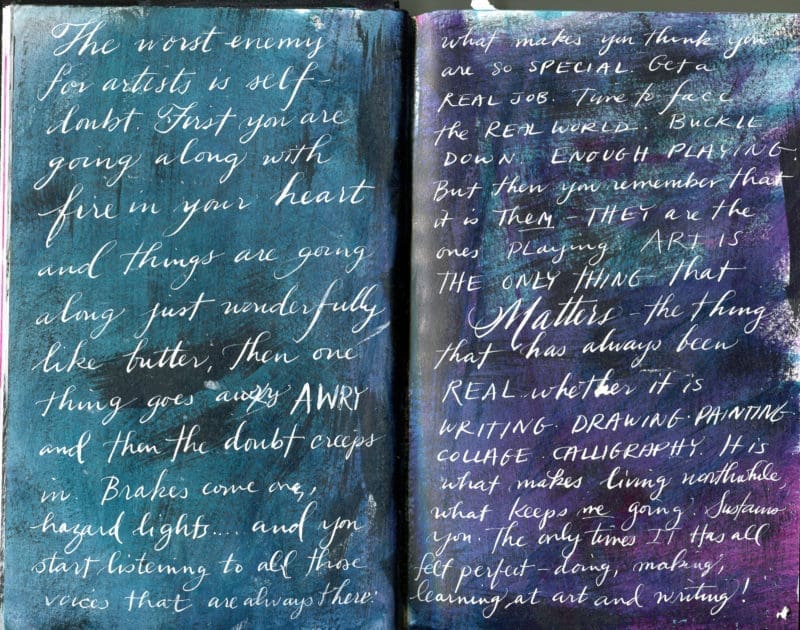 The worst enemy
for artists is self-
doubt. First you are
going along with
fire in your heart
and things are going
along just wonderfully
like butter, then one
thing goes AWRY
and then the doubt creeps
in. Brakes come on,
hazard lights.... and you
start listening to all those
voices that are always there:
what makes you think you
are so SPECIAL. Get a
REAL JOB. Time to face
the REAL WORLD. BUCKLE
DOWN. ENOUGH PLAYING.
But then you remember that
it is THEM - THEY are the
ones PLAYING ART IS
THE ONLY THING that
Matters - the thing
that has always been
REAL whether it is
WRITING. DRAWING. PAINTING
COLLAGE. CALLIGRAPHY. It is
what makes living worthwhile,
what keeps me going. Sustains
you. The only times IT Has all
felt perfect - doing, making,
learning, at art and writing!